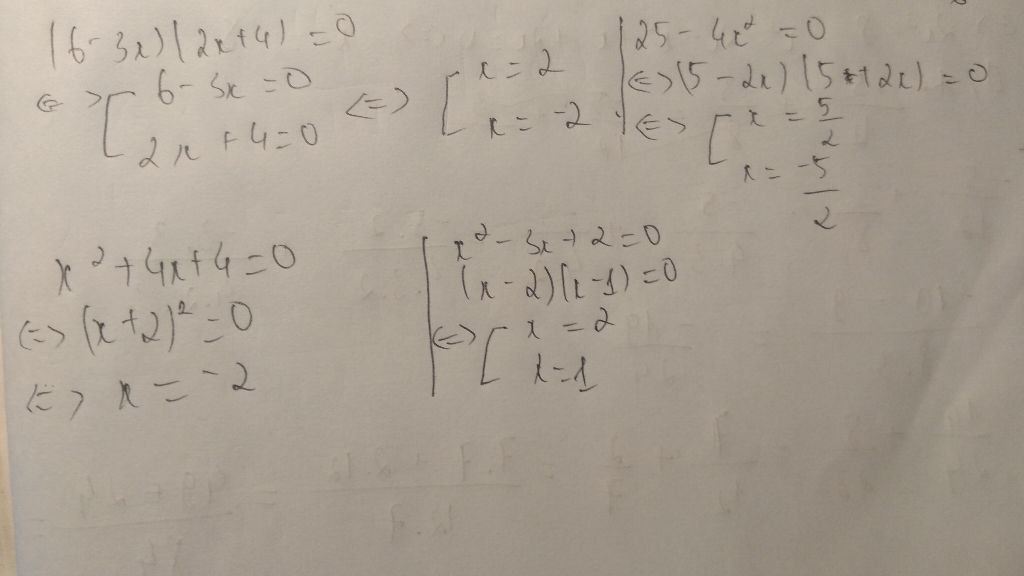 (6-3x)(2x+4) = 0
<=> [ 6-3x = 0
2x+4=0
<=> [ x = 2
x = -2
25 - 4x² = 0
<=> (5-2x)(5+2x) = 0
<=> [ x = 5/2
x = -5/2
x²+4x+4=0
<=> (x+2)² = 0
<=> x = -2
x²-3x+2=0
(x-2)(x-1)=0
<=> [ x = 2
x=1